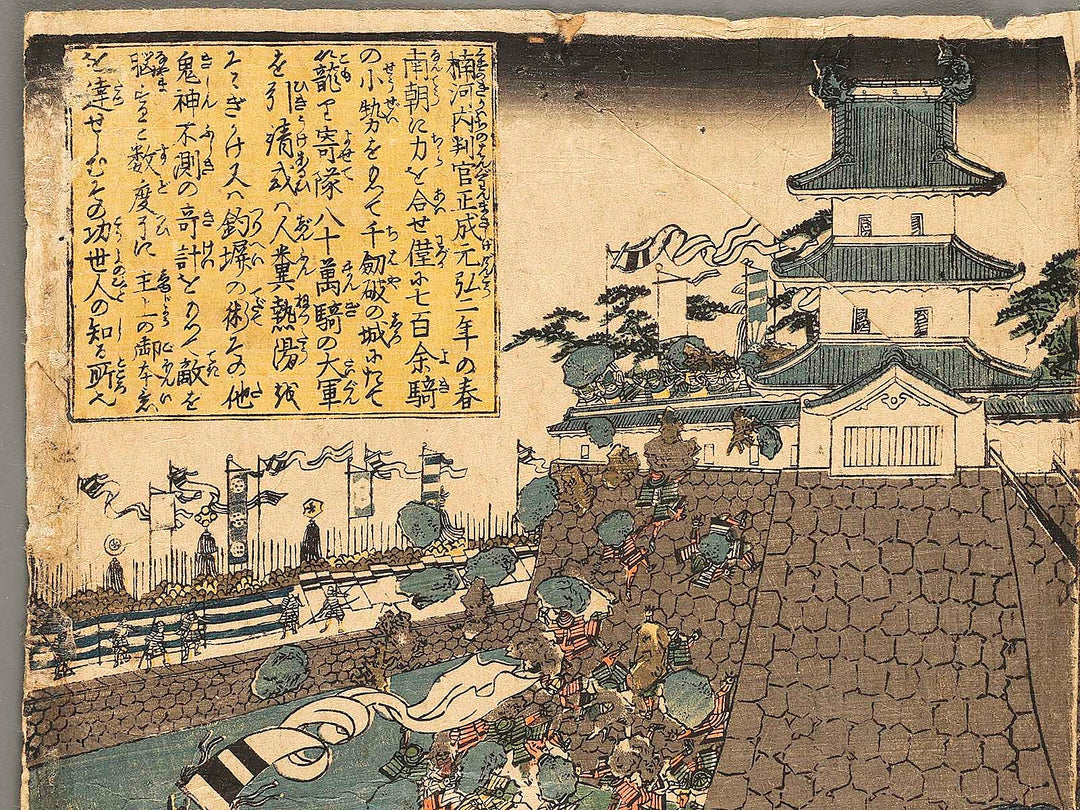 楠河内判官正成元弘二年の春
南朝に力を合せ僅に七百余騎
の小勢をもつて千劔破の城にたて
籠り寄隊八十萬騎の大軍
を引請或は人糞熱湯を
そゝぎかけ又は釣塀の術その他
鬼神不測の奇計をもつて敵を
脳すこと数度すでに主上の御本意
を達せしむその功世人の知る所也